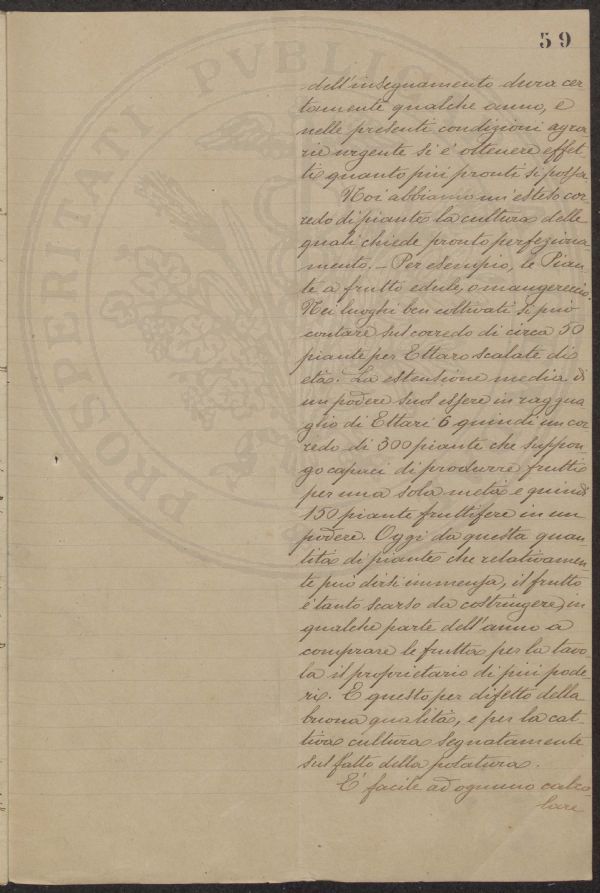 59
dell'insegnamento dura cer
tamente qualche anno, e
nelle presenti condizioni agra
rie urgente si è ottenere effet
ti quanto più pronti si possa
Noi abbiamo un'esteso cor
redo di piante la cultura delle
quali chiede pronto perfeziona
mento. – Per esempio, le Pian
te a frutto edule, o mangereccio.
Nei luoghi ben coltivati si può
contare sul corredo di circa 50
piante per Ettaro scalate di
età. La estensione media di
un podere suol essere in raggua
glio di Ettari 6 quindi un cor
redo di 300 piante che suppon
go capaci di produrre frutti
per una sola metà e quindi
150 piante fruttifere in un
podere. Oggi da questa quan
tità di piante che relativamen
te può dirsi immensa, il frutto
è tanto scarso da costringere in
qualche parte dell'anno a
comprare le frutta per la tavo
la il proprietario di più pode
ri. E questo per difetto della
buona qualità, e per la cat
tiva cultura segnatamente
sul fatto della potatura.
E' facile ad ognuno calco
lare
PROSPERITATI PVBLIC